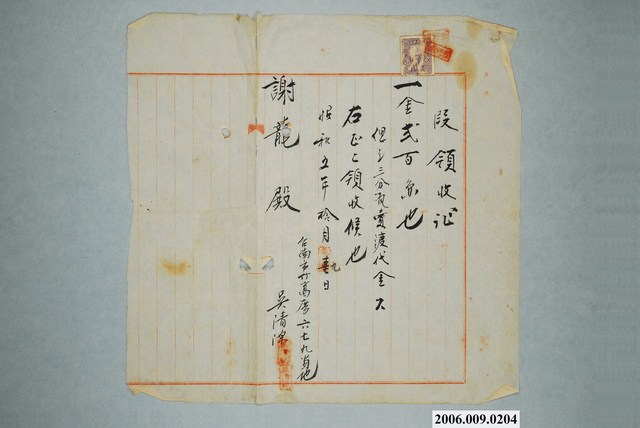 段領收証
一金貳百円也
但シ三分社賣渡代金ス
右正ニ領收候也
昭和五年拾月九日
台南市打高厝六七九番地
吳清
謝龍殿
2006.009.0204